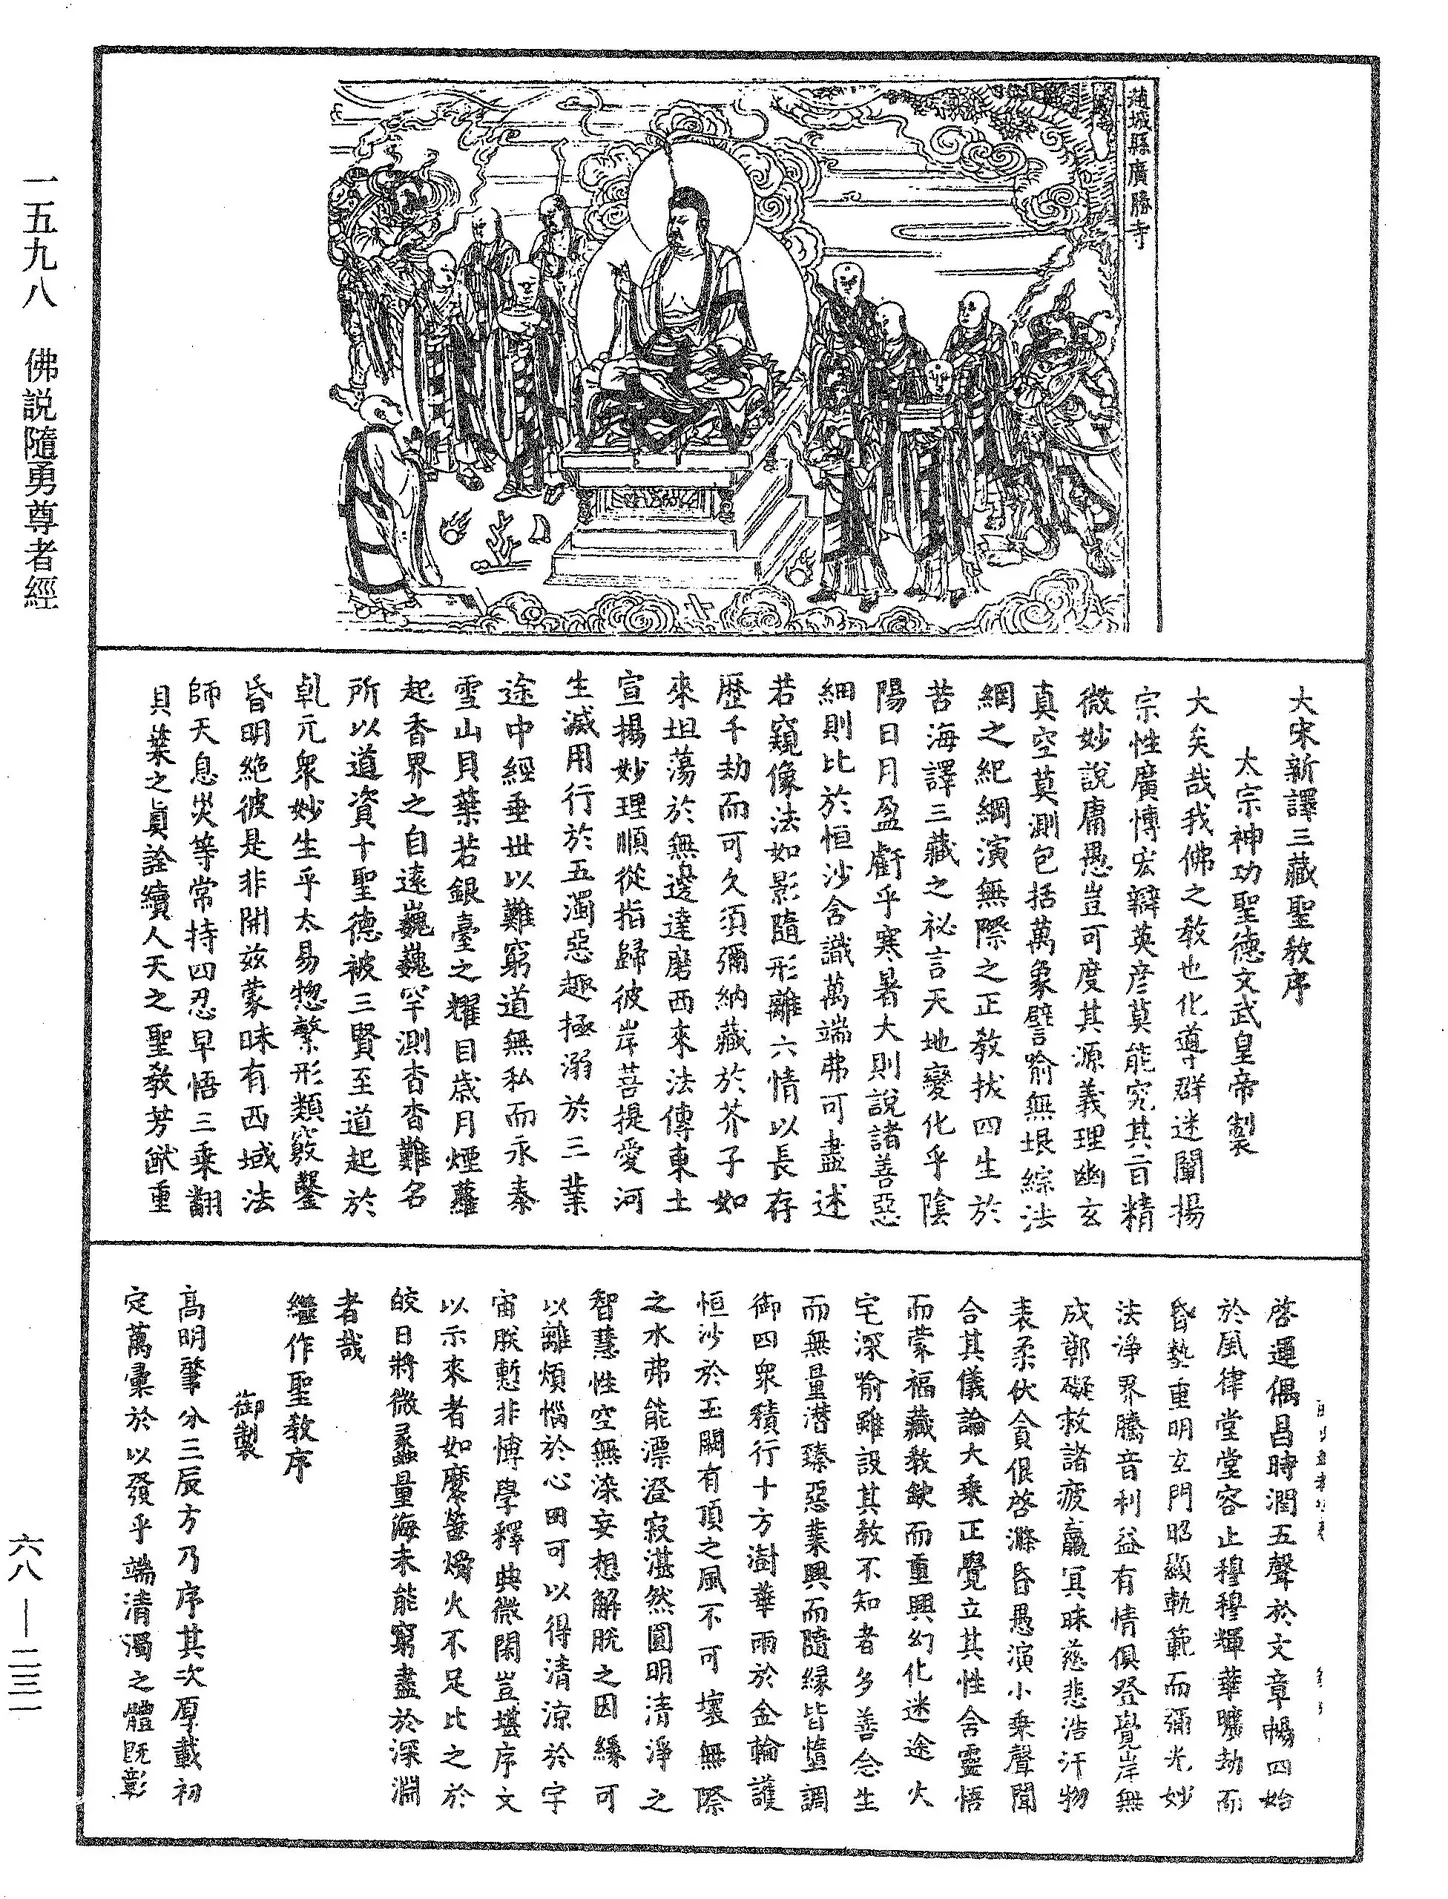 一五九八　佛説隨勇尊者經
趙城縣廣勝寺
大宋新譯三藏聖教序
太宗神功聖德文武皇帝製
大矣哉我佛之教也化導群迷闡揚
宗性廣博宏辯英彦莫能究其旨精
微妙說庸愚豈可度其源義理幽玄
真空莫測包括萬象譬喻無垠綜法
網之紀綱演無際之正教拔四生於
苦海譯三藏之祕言天地變化乎陰
陽日月盈虧乎寒暑大則說諸善惡
細則比於恒沙含識萬端弗可盡述
若窺像法如影隨形離六情以長存
歷千劫而可久須彌納藏於芥子如
來坦蕩於無邊達磨西來法傳東土
宣揚妙理順從指歸彼岸菩提愛河
生滅用行於五濁惡趣極溺於三業
途中經垂世以難窮道無私而永泰
雪山貝葉若銀臺之耀目歲月煙蘿
起香界之自遠巍巍罕測杳杳難名
所以道資十聖德被三賢至道起於
乹元衆妙生乎太易惣繁形類竅鑿
昏明絶彼是非開兹蒙昧有西域法
師天息災等常持四忍早悟三乘翻
貝葉之真詮續人天之聖教芳猷重
啓運偶昌時潤五聲於文章暢四始
於風律堂堂容止穆穆輝華曠劫而
昏墊重明玄門昭顯軌範而彌光妙
法淨界騰音利益有情俱登覺岸無
成鄣礙救諸疲羸冥昧慈悲浩汗物
表柔伏貪佷啓滌昏愚演小乘聲聞
合其儀論大乘正覺立其性含靈悟
而蒙福藏教缺而重興幻化迷途火
宅深喻雖設其教不知者多善念生
而無量潜臻惡業興而隨緣皆墮調
御四衆積行十方澍華雨於金輪護
恒沙於玉闕有頂之風不可壞無際
之水弗能漂澄寂湛然圓明清淨之
智慧性空無染妄想解脱之因緣可
以離煩惱於心田可以得清涼於宇
宙朕慙非博學釋典微閑豈堪序文
以示來者如麼螢爝火不足比之於
皎日將微蠡量海未能窮盡於深淵
者哉
繼作聖教序
御製
高明肇分三辰方乃序其次厚載初
定萬彙於以發乎端清濁之體旣彰
六八—二三一